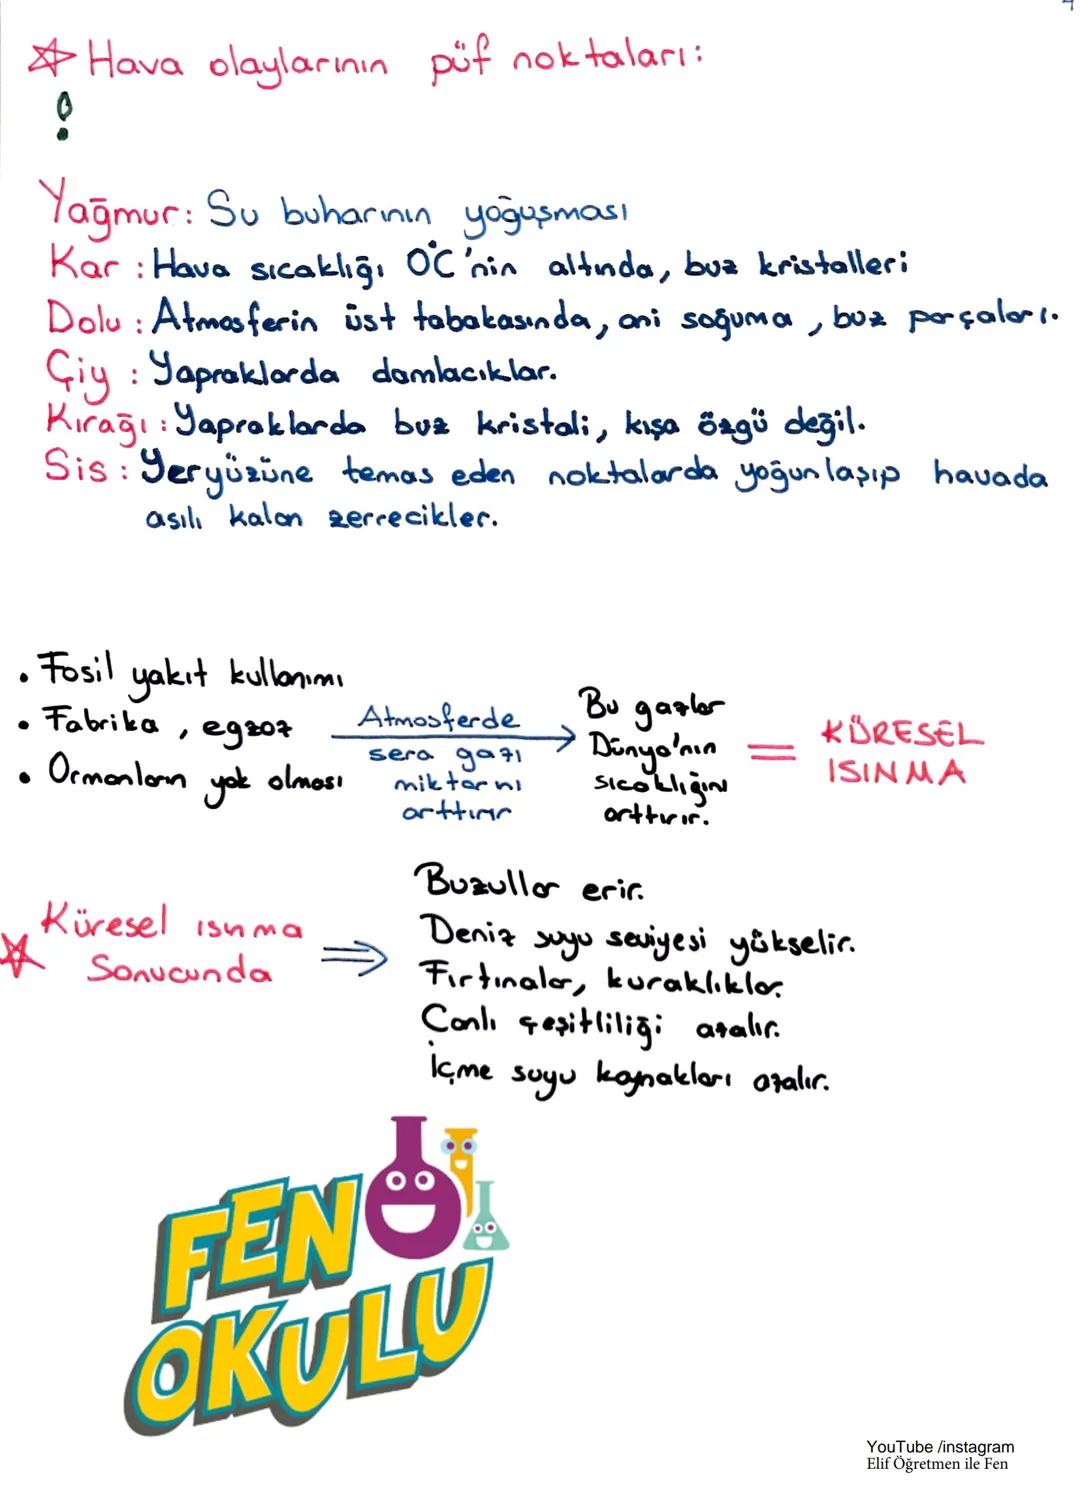 Hava olaylarının püf noktaları:
!
Yağmur: Su buharının yoğuşması
Kar : Hava sıcaklığı 0°C'nin altında, buz kristalleri
Dolu : Atmosferin üst tabakasında, ani soğuma, buz parçaları.
Çiy : Yapraklarda damlacıklar.
Kırağı : Yapraklarda buz kristali, kışa özgü değil.
Sis : Yeryüzüne temas eden noktalarda yoğunlaşıp havada
asılı kalan zerrecikler.
• Fosil yakıt kullanımı
• Fabrika, egzoz
• Ormanların yok olması
Atmosferde
sera gazı
miktarını
arttırır
Bu gazlar
Dünya'nın
sıcaklığını
arttırır.
=
KÜRESEL
ISINMA
Küresel ısınma
Sonucunda
Buzullar erir.
Deniz suyu seviyesi yükselir.
Fırtınalar, kuraklıklar.
Canlı çeşitliliği azalır.
İçme suyu kaynakları azalır.
FEN
OKULU
YouTube /instagram
Elif Öğretmen ile Fen